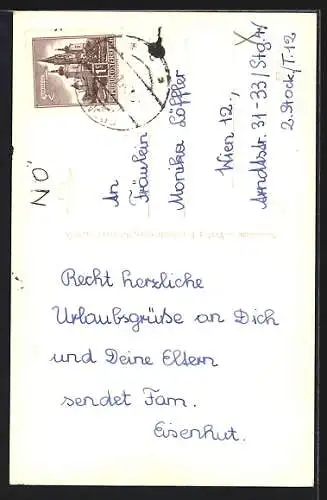 NÖ
An
Fräulein
Monika Löffler
Wien 12.,
Arndtstr. 31-33/Stg. 4/
2. Stock/T.12
Recht herzliche
Urlaubsgrüße an Dich
und Deine Eltern
sendet Fam.
Eisenhut.